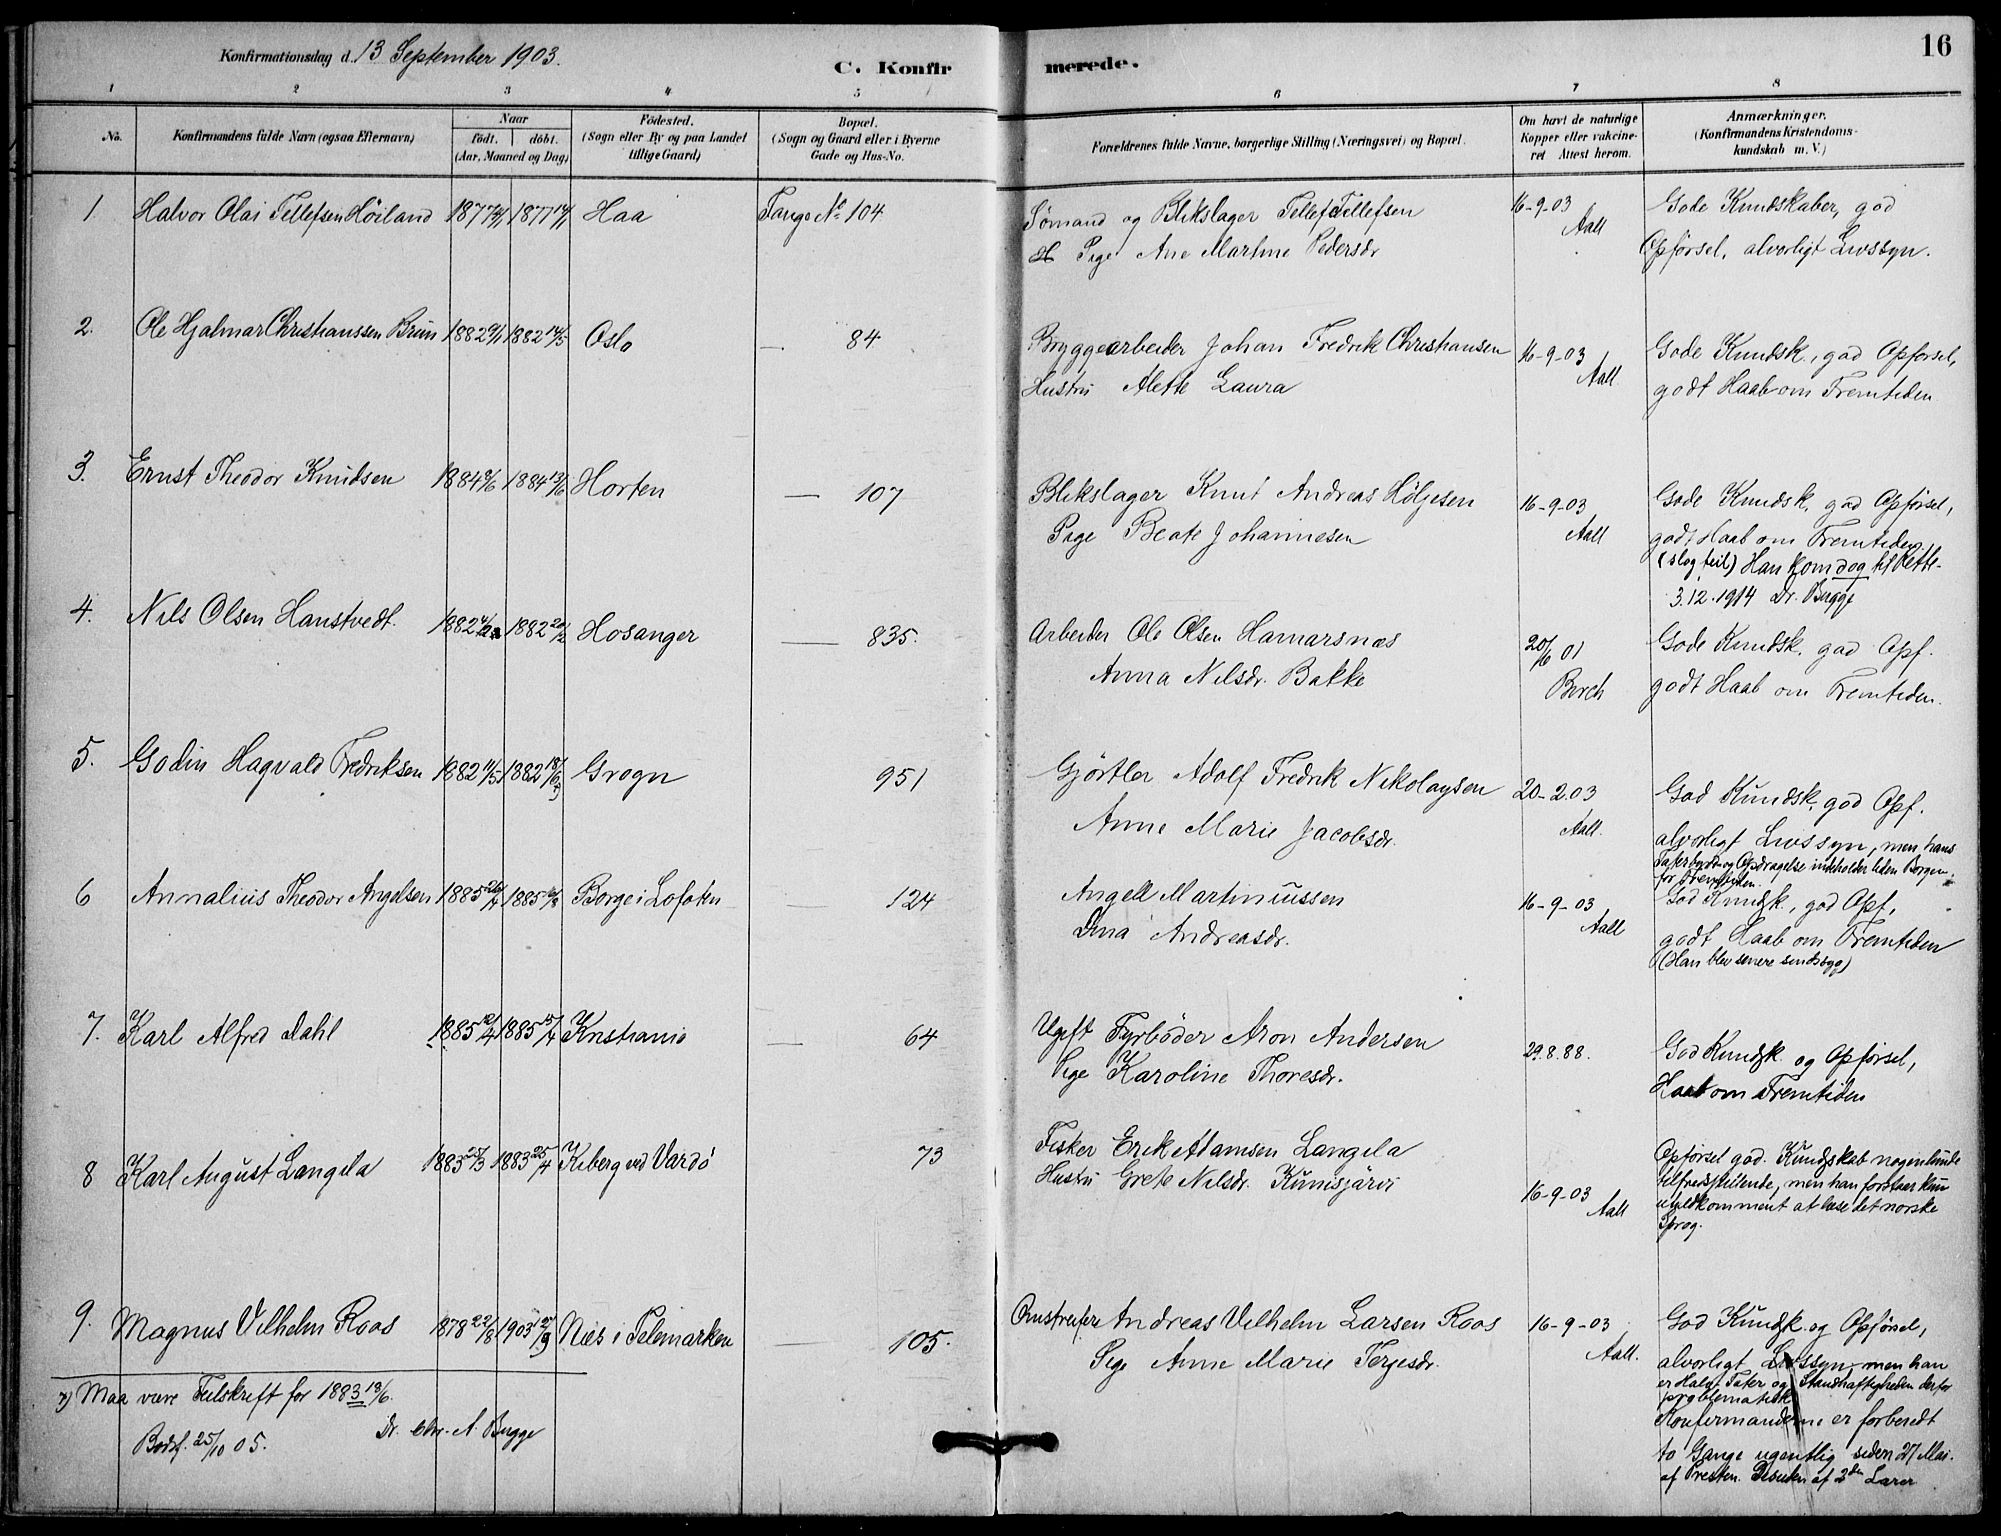 Konfirmationsdag d. 13 September 1903.
C. Konfirmerede.
16
1 2 3 4 5 6 7 8
No. Konfirmandens fulde Navn (ogsaa Efternavn) Naar født. døbt. (Aar, Maaned og Dag) Fødested. (Sogn eller By og paa Landet tillige Gaard) Bopæl. (Sogn og Gaard eller i Byerne Gade og Hus-No. Forældrenes fulde Navne, borgerlige Stilling (Næringsvei) og Bopæl. Om havt de naturlige Kopper eller vakcineret Attest herom. Anmærkninger. (Konfirmandens Kristendomskundskab m. V.)
1. Halvor Olai Tellefsen Höiland 1877 1877 Haa Fange No 104
Sømand og Blikslager Tellef Tellefsen
Pige Ane Martine Pedersdr
16-9-03
Aall
Gode Kundskaber, god
Opførsel, alvorligt Livssyn.
2. Ole Hjalmar Christianssen Bruun 1882 1882 14/5 Oslo — 84
Bryggearbeider Johan Fredrik Christiansen
Hustru Alette Laura
16-9-03
Aall
Gode Kundsk., god Opførsel,
godt Haab om Fremtiden
3. Ernst Theodor Knudsen 1884 1884 13/6 Horten — 107
Blikslager Knut Andreas Höljesen
Pige Beate Johannesen
16-9-03
Aall
Gode Kundsk. god Opførsel,
godt Haab om Fremtiden
(slog feil) Han kom dog til Rette-
3.12.1914 Dr. Bugge
4. Nils Olsen Hanstvedt. 1882 1882 Hosanger — 835.
Arbeider Ole Olsen Hamarsnæs
Anna Nilsdr. Bakke
01
Borch
Gode Kundsk. god Opf.
godt Haab om Fremtiden.
5. Godin Hagvald Fredriksen 1882 11/5 1882 18/6 Grogn 951
Gjörtler Adolf Fredrik Nikolaysen
Anne Marie Jacobsdr.
20-2.03
Aall.
God Kundsk. god Opf.
alvorligt Livssyn, men hans
Taterbyrd og Opdragelse indeholder liden Borgen
for Fremtiden.
6 Annalius Theodor Angelsen 1885 1885 Borge i Lofoten — 124
Angell Martinussen
Dina Andreasdr.
16-9-03
Aall
God Kundsk., god Opf,
godt Haab om Fremtiden
(Han blev senere sindssyg)
7. Karl Alfred Dahl 1885 1885 15/4 Kristiania — 64
Ugift Fyrbøder Aron Andersen
Pige Karoline Thoresdr.
29.8.88.
God Kundsk. og Opførsel,
Haab om Fremtiden
8 Karl August Langila 1883 25/3 1883 25/4 Kiberg ved Vardø — 73
Fisker Erik Adamsen Langila
Hustru Grete Nilsdr. Kunisjärvi
16-9-03
Aall
Opførsel god. Kundskab nogenlunde
tilfredsstillende, men han forstaar kun
ufuldkomment at læse det norske
Sprog.
9. Magnus Vilhelm Roos 1878 22/8 1903 Næs i Telemarken — 105.
Omstreifer Andreas Vilhelm Larsen Roos
Pige Anne Marie Terjesdr.
16-9-03
Aall.
God Kundsk. og Opførsel,
alvorligt Livssyn men han
er Halvt Tater og Standhaftigheden derfor
problematisk
Konfirmanderne er forberedt
to Gange ugentlig siden 27 Mai.
af Presten. Desuden af 2den Lærer
Maa være Feilskrift for 1883 18/6.
Bodsf. 25/10 05. Dr. chr. A. Bugge